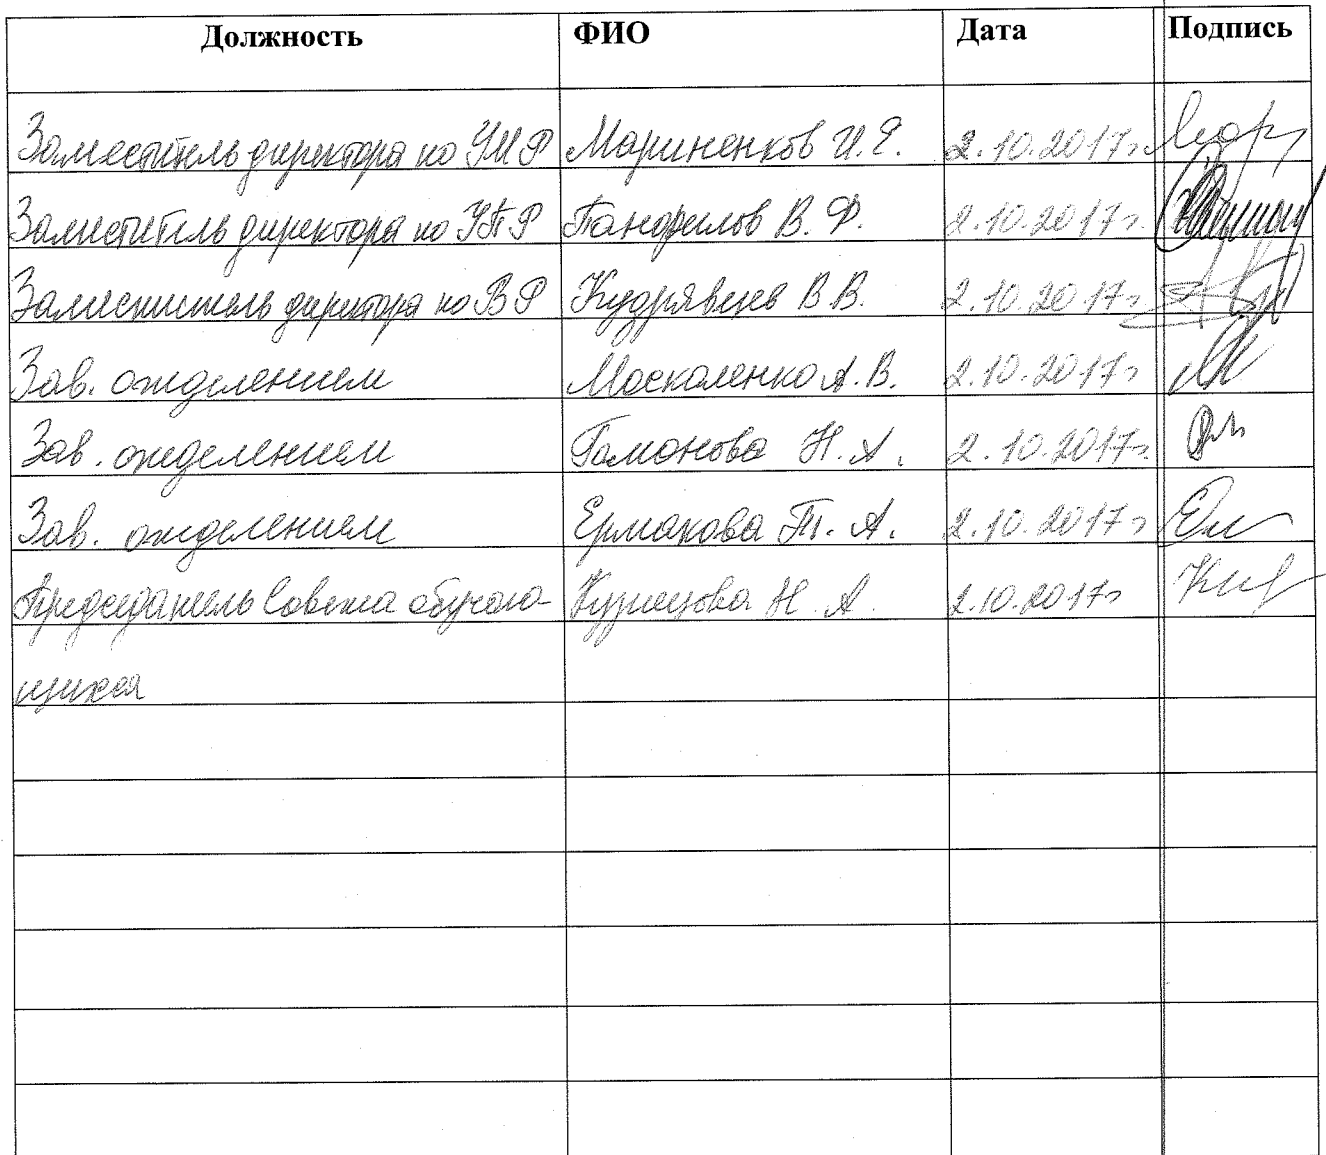 Должность ФИО Дата Подпись
Заместитель директора по УМР Мариненков И.Е. 2.10.2017г
Заместитель директора по УПР Панфилов В.Ф. 2.10.2017г.
Заместитель директора по ВР Кудрявцев В.В. 2.10.2017г
Зав. отделением Москаленко А.В. 2.10.2017г
Зав. отделением Гамонова Н.А. 2.10.2017г.
Зав. отделением Ермакова Т.А. 2.10.2017г
Председатель Совета обучаю- Кузнецова Н.А. 2.10.2017г
щихся